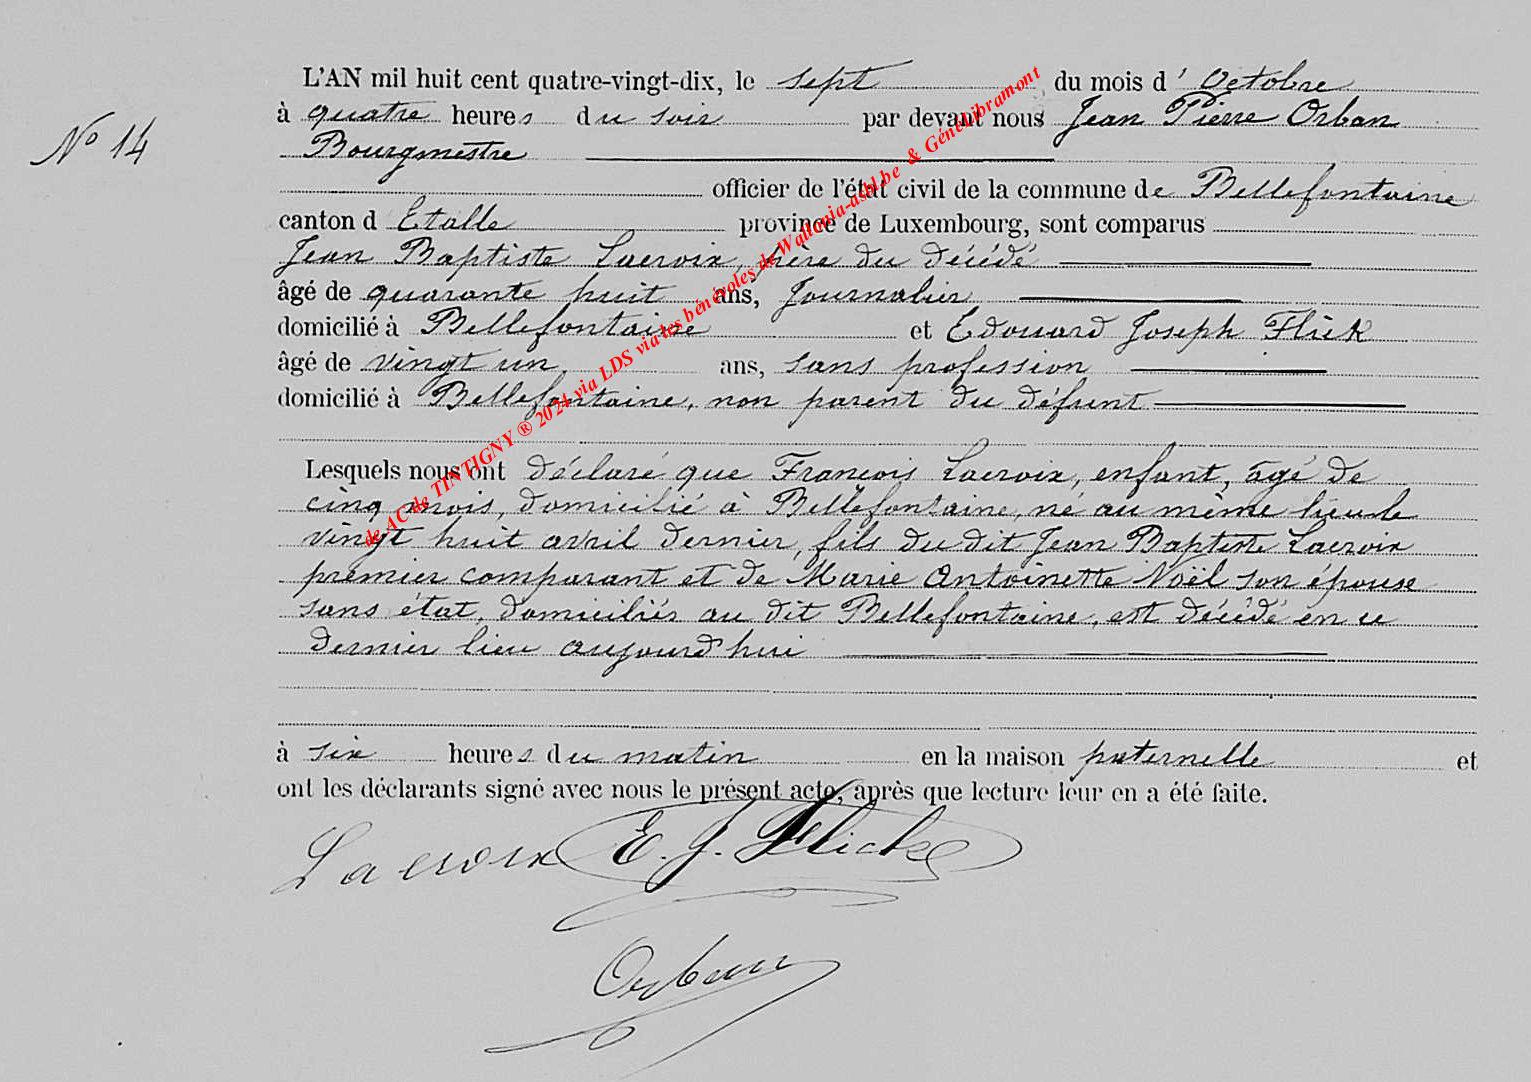 L'AN mil huit cent quatre-vingt-dix, le sept du mois d'Octobre
à quatre heures du soir par devant nous Jean Pierre Orban
N° 14
Bourgmestre
officier de l'état civil de la commune de Bellefontaine
canton d Etalle province de Luxembourg, sont comparus
Jean Baptiste Lacroix, père du décédé
âgé de quarante huit ans, Journalier
domicilié à Bellefontaine et Edouard Joseph Flick
âgé de vingt un ans, sans profession
domicilié à Bellefontaine, non parent du défunt
Lesquels nous ont déclaré que François Lacroix, enfant, âgé de
cinq mois, domicilié à Bellefontaine, né au même lieu le
vingt huit avril dernier, fils du dit Jean Baptiste Lacroix
premier comparant et de Marie Antoinette Noël son épouse
sans état, domiciliés au dit Bellefontaine, est décédé en ce
dernier lieu aujourd'hui
à six heures du matin en la maison paternelle et
ont les déclarants signé avec nous le présent acte, après que lecture leur en a été faite.
Lacroix E. J. Flick
Orban
de AC de TINTIGNY ® 2024 via LDS via les bénévoles de Wallonia-asbl.be & Généalibramont